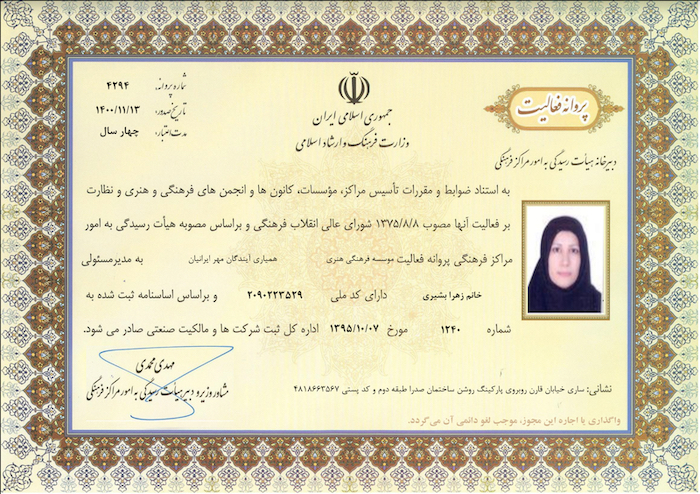 شماره پروانه: ۴۲۹۴
تاریخ صدور: ۱۴۰۰/۱۱/۱۳
مدت اعتبار: چهار سال
جمهوری اسلامی ایران
وزارت فرهنگ و ارشاد اسلامی
پروانه فعالیت
دبیرخانه هیأت رسیدگی به امور مراکز فرهنگی
به استناد ضوابط و مقررات تأسیس مراکز، مؤسسات، کانون ها و انجمن های فرهنگی و هنری و نظارت
بر فعالیت آنها مصوب ۱۳۷۵/۸/۸ شورای عالی انقلاب فرهنگی و براساس مصوبه هیأت رسیدگی به امور
مراکز فرهنگی پروانه فعالیت موسسه فرهنگی هنری همیاری آیندگان مهر ایرانیان به مدیرمسئولی
خانم زهرا بشیری دارای کد ملی ۲۰۹۰۲۲۳۵۲۹ و براساس اساسنامه ثبت شده به
شماره ۱۲۴۰ مورخ ۱۳۹۵/۱۰/۰۷ اداره کل ثبت شرکت ها و مالکیت صنعتی صادر می شود.
مهدی محمدی
مشاور وزیر و دبیر هیأت رسیدگی به امور مراکز فرهنگی
نشانی: ساری خیابان قارن روبروی پارکینگ روشن ساختمان صدرا طبقه دوم و کد پستی ۴۸۱۸۶۶۳۵۶۷
واگذاری یا اجاره این مجوز، موجب لغو دائمی آن می گردد.